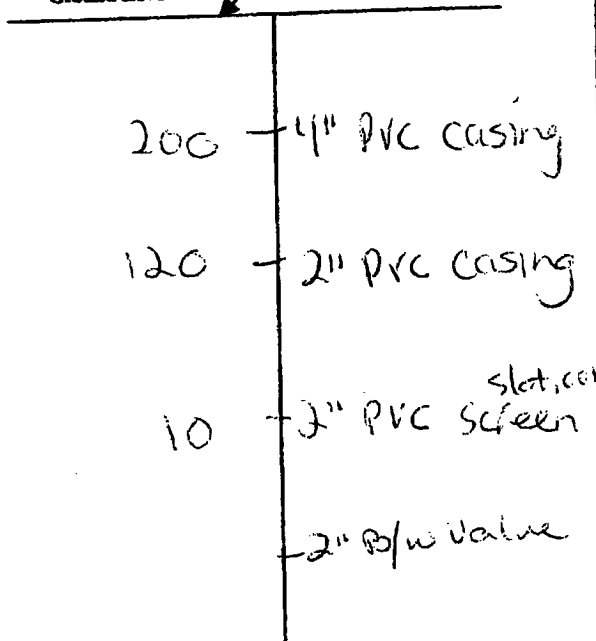 200 4" PVC casing
120 2" PVC casing
slot
10 2" PVC screen
2" B/w Valve